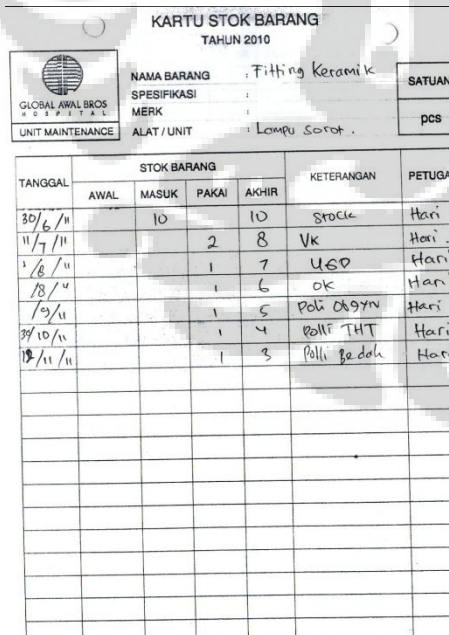 KARTU STOK BARANG
TAHUN 2010
GLOBAL AWAL BROS
HOSPITAL
UNIT MAINTENANCE
NAMA BARANG : Fitting Keramik
SPESIFIKASI :
MERK :
ALAT / UNIT : Lampu Sorot.
SATUAN
pcs
TANGGAL STOK BARANG KETERANGAN PETUGA
AWAL MASUK PAKAI AKHIR
30/6/11 10 10 Stock Hari
11/7/11 2 8 VK Hari
/8/11 1 7 UGD Hari
/8/11 1 6 OK Hari
/9/11 1 5 Poli Obgyn Hari
/10/11 1 4 Polli THT Hari
/11/11 1 3 Polli Bedah Hari